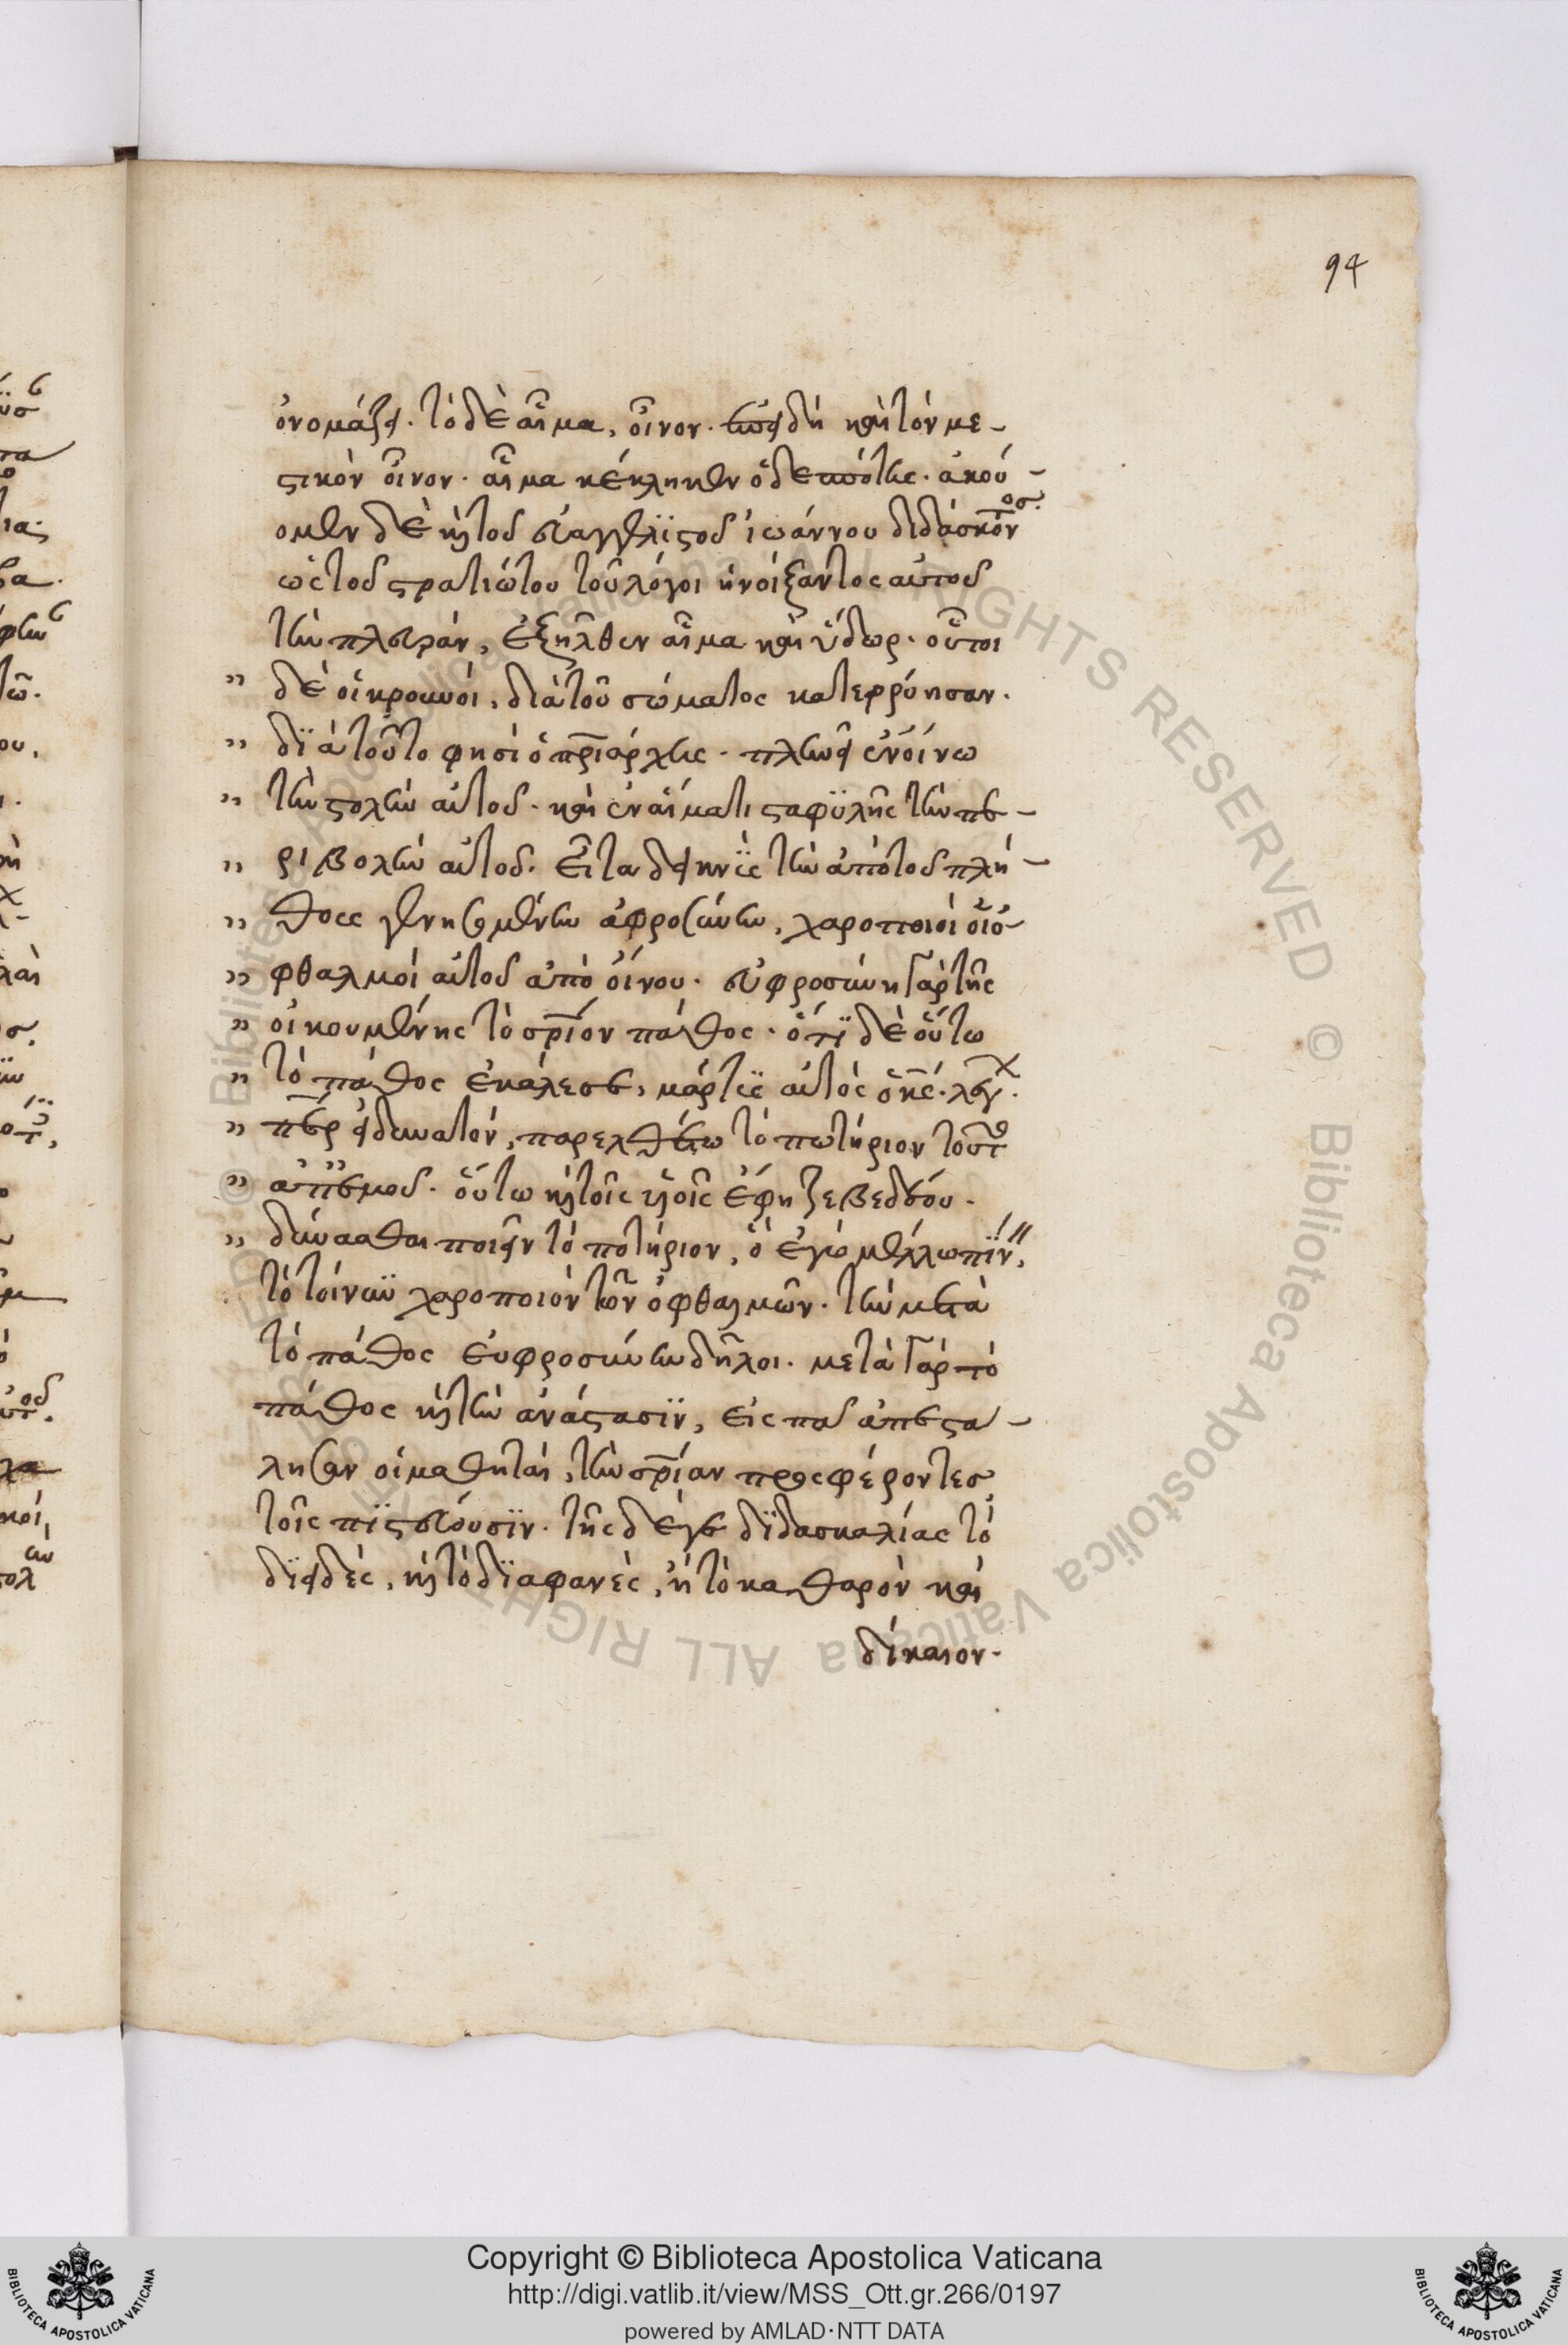 94
ὀνομάζει. τὸ δὲ αἷμα, οἶνον. ἐπειδὴ καὶ τὸν με-
στικὸν οἶνον. αἷμα κέκληκεν ὁ δεσπότης. ἀκού-
ομεν δὲ καὶ τοῦ εὐαγγελϊστοῦ ἰωάννου διδάσκοντος.
ὡς τοῦ στρατιώτου τοῦ λόγοι ἠνοίξαντος αὐτοῦ
τὴν πλευρὰν, ἐξῆλθεν αἷμα καὶ ὕδωρ. οὗτοι
" δὲ οἱ κρουνοί, διὰ τοῦ σώματος κατερρύησαν.
" δϊὰ τοῦτο φησὶ ὁ πριάρχης. πλυνεῖ ἐν οἴνω
" τὴν στολὴν αὐτοῦ. καὶ ἐν αἵματι σταφϋλῆς τὴν πε-
" ριβολὴν αὐτοῦ. εἶτα δεικνῒς τὴν ἀπὸ τοῦ πλή-
" θους γενησομένην ἀφροσύνην, χαροποιοὶ οἱ ὀ-
" φθαλμοὶ αὐτοῦ ἀπὸ οἴνου. εὐφροσύνη γὰρ τῆς
" οἰκουμένης τὸ σριον πάθος. ὅτϊ δὲ οὕτω
" τὸ πάθος ἐκάλεσε, μάρτϋς αὐτὸς ὁ κς. λέγ.
" περ εἰ δυνατόν, παρελθέτω τὸ πωτήριον τοῦτο
" ἀπ ἐμοῦ. οὕτω καὶ τοῖς υἱοῖς ἔφη ζεβεδέου.
" δύνασθαι ποιεῖν τὸ ποτήριον, ὃ ἐγὼ μέλλω πίν,
τὸ τοίνυν χαροποιὸν τῶν ὀφθαλμῶν. τὴν μετὰ
τὸ πάθος εὐφροσύνην δῆλοι. μετὰ γὰρ τὸ
πάθος καὶ τὴν ἀνάστασϊν, εἰς παν ἀπεστά-
λησαν οἱ μαθηταὶ, τὴν σρίαν προσφέροντες
τοῖς πϊστεύουσϊν. τῆς δέ γε δϊδασκαλίας τὸ
δϊειδές, καὶ τὸ δϊαφανές, ἢ τὸ καθαρὸν καὶ
δίκαιον.
Copyright © Biblioteca Apostolica Vaticana
http://digi.vatlib.it/view/MSS_Ott.gr.266/0197
powered by AMLAD·NTT DATA